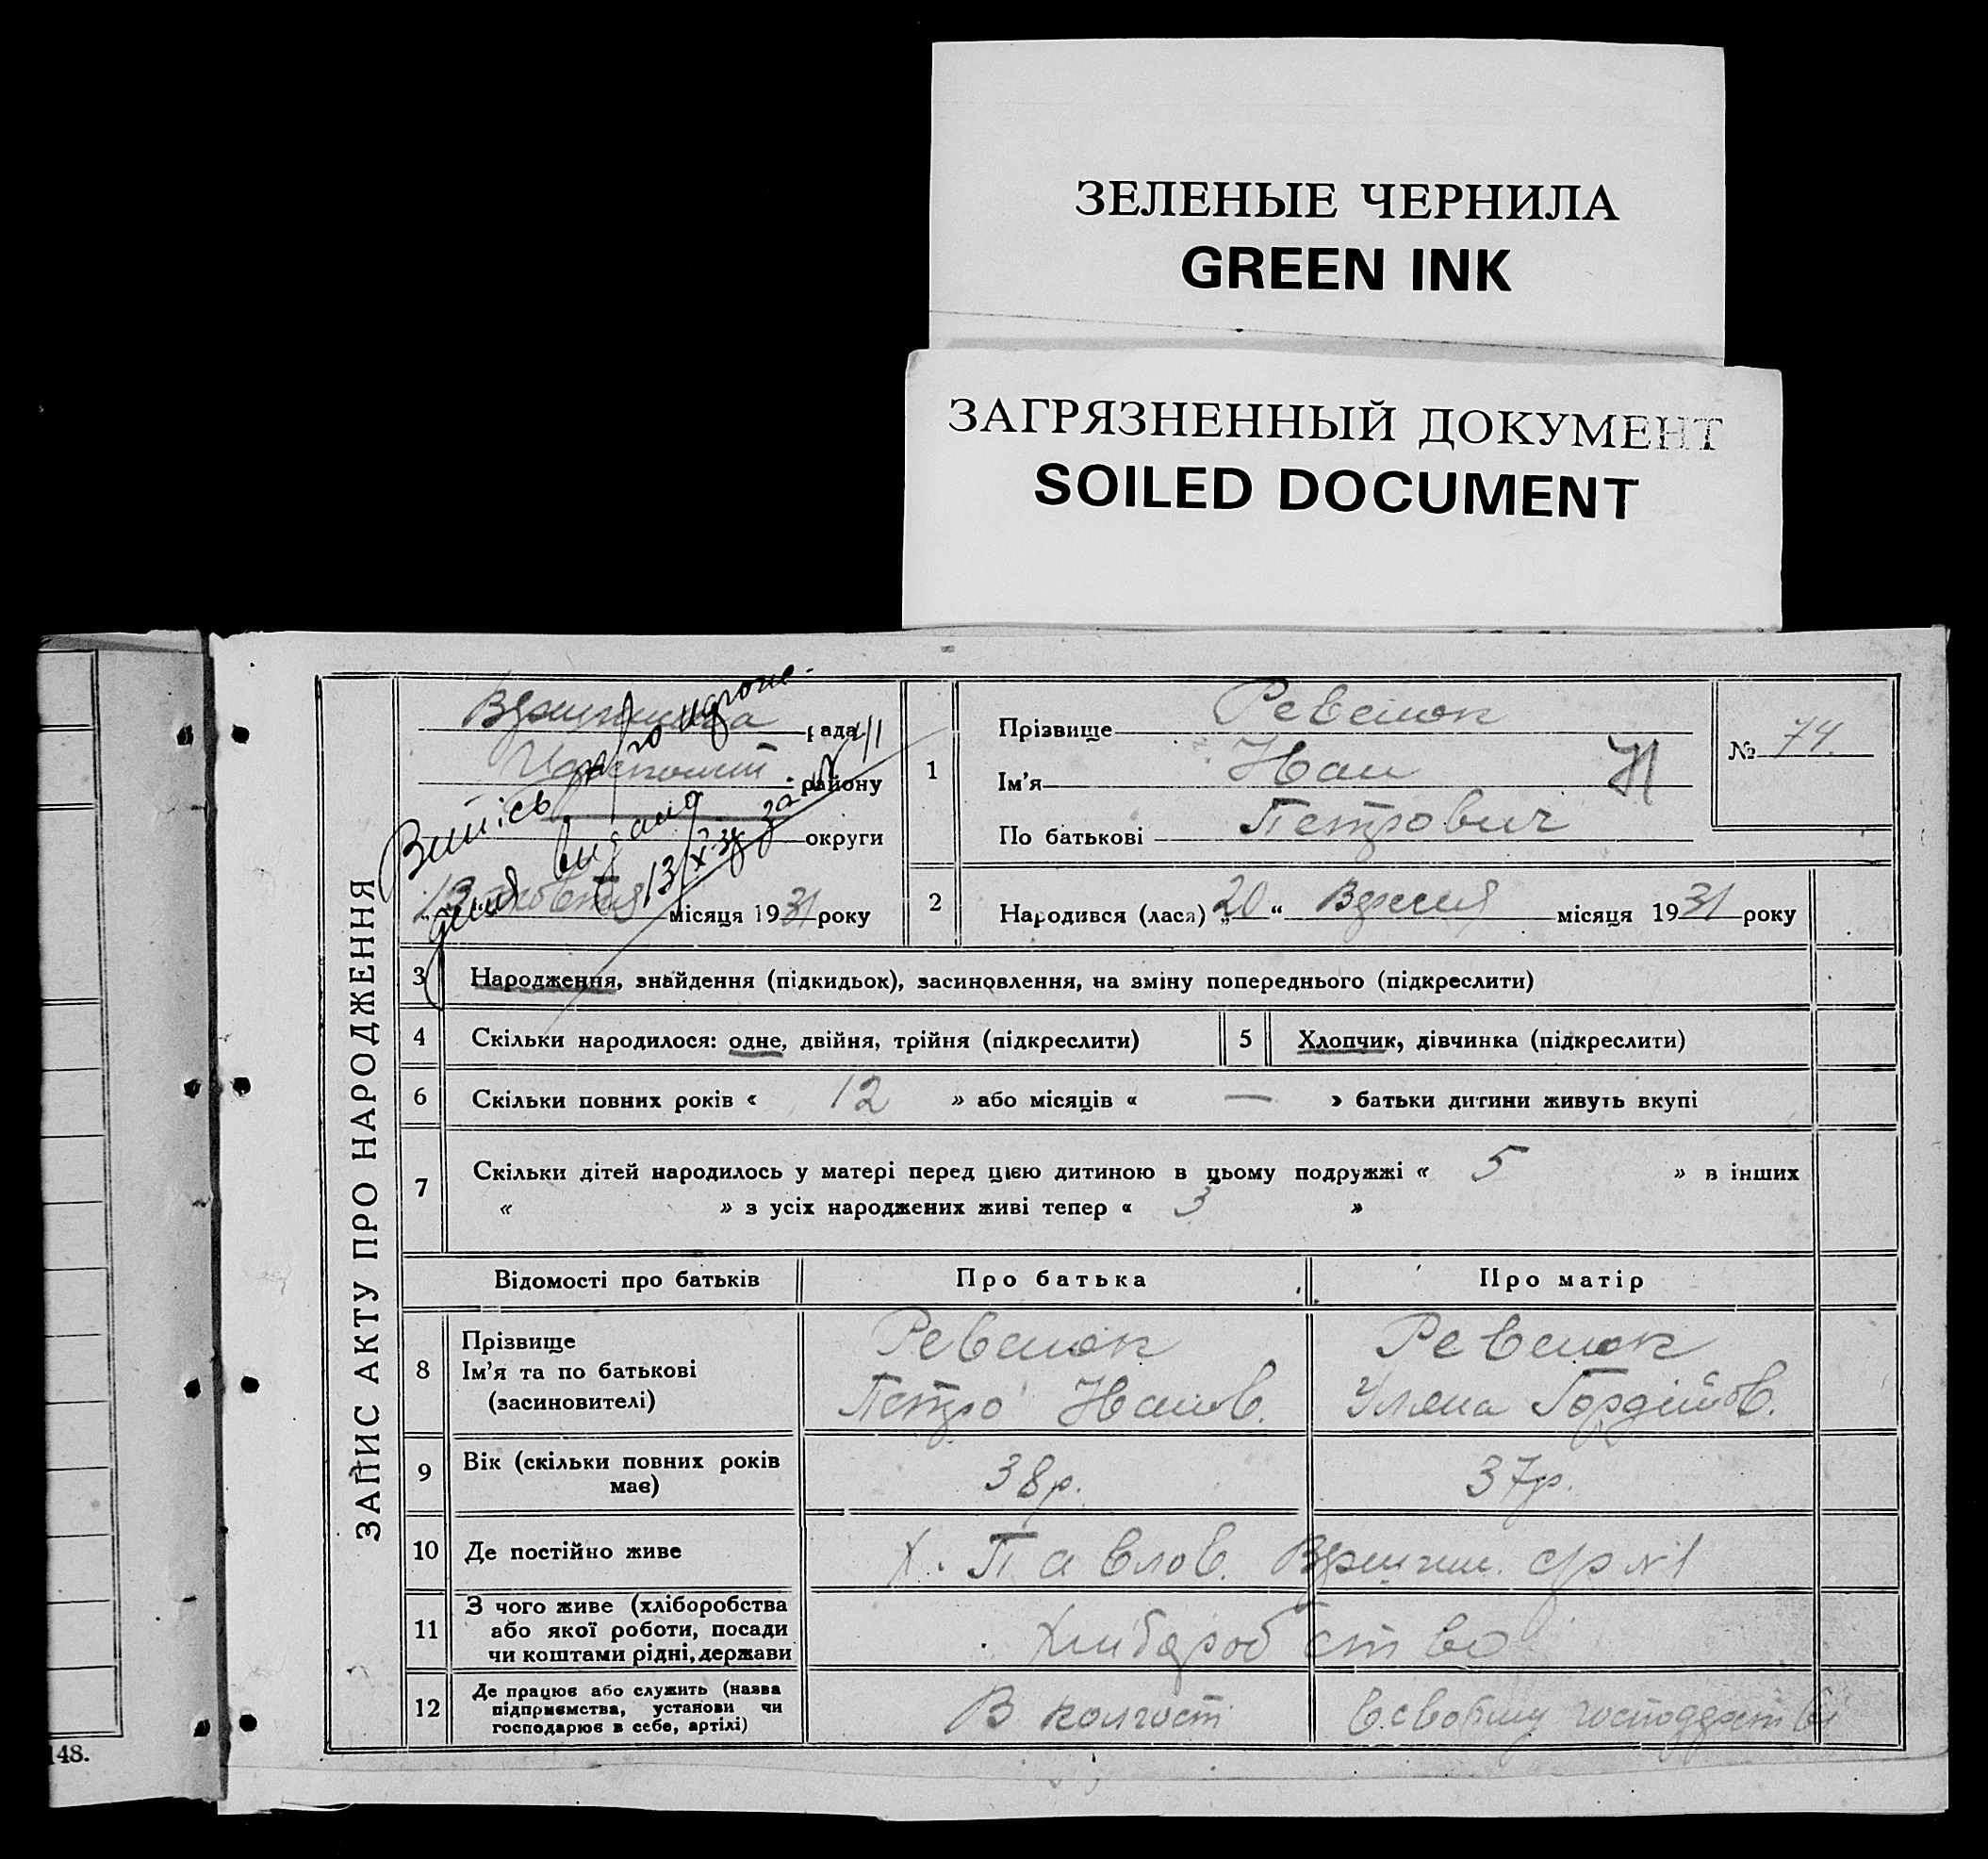 ЗЕЛЕНЫЕ ЧЕРНИЛА
GREEN INK
ЗАГРЯЗНЕННЫЙ ДОКУМЕНТ
SOILED DOCUMENT
ЗАПИС АКТУ ПРО НАРОДЖЕННЯ
рада
району
округи
Витісь про народже-
ння видана 13/X-31 за № 11
13 жовтня місяця 1931 року
1
Прізвище Ревенок
Ім'я Іван
По батькові Петрович
№ 74.
2
Народився (лася) „20“ Вресня місяця 1931 року
3 Народження, знайдення (підкидьок), засиновлення, на зміну попереднього (підкреслити)
4 Скільки народилося: одне, двійня, трійня (підкреслити)
5 Хлопчик, дівчинка (підкреслити)
6 Скільки повних років « 12 » або місяців « — » батьки дитини живуть вкупі
7 Скільки дітей народилось у матері перед цією дитиною в цьому подружжі « 5 » в інших
« » з усіх народжених живі тепер « 3 »
Відомості про батьків Про батька Про матір
8 Прізвище
Ім'я та по батькові
(засиновителі)
Ревенок
Петро Іванов.
Ревенок
Уляна Гордійов.
9 Вік (скільки повних років
має)
38р.
37р.
10 Де постійно живе
х. Павлов. с/р №1
11 З чого живе (хліборобства
або якої роботи, посади
чи коштами рідні, держави
Хліборобство
12 Де працює або служить (назва
підприємства, установи чи
господарює в себе, артілі)
В колгості
в своєму господарстві
48.